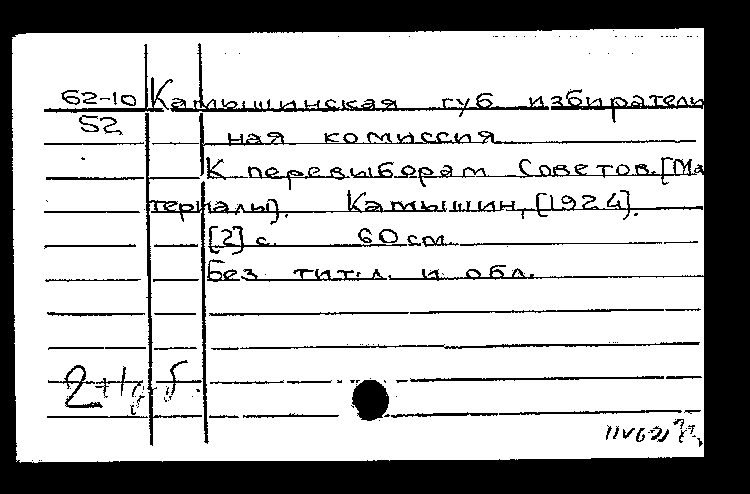 62-10 Камышинская губ избиратель
52 ная комиссия
К перевыборам Советов.[Ма
териалы]. Камышин, [1924].
[2] с. 60 см.
Без тит.л. и обл.
2+1